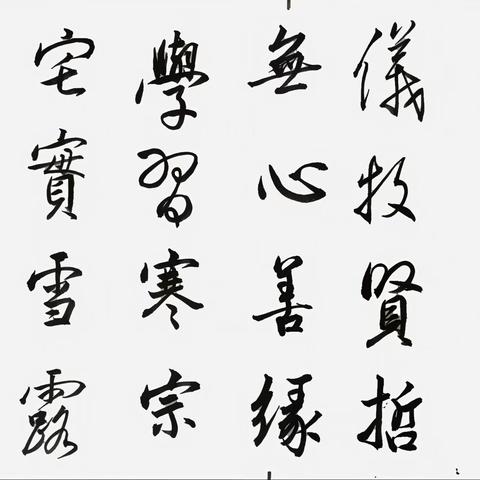 儀牧賢哲
無心善緣
學習寒宗
宅實雪露